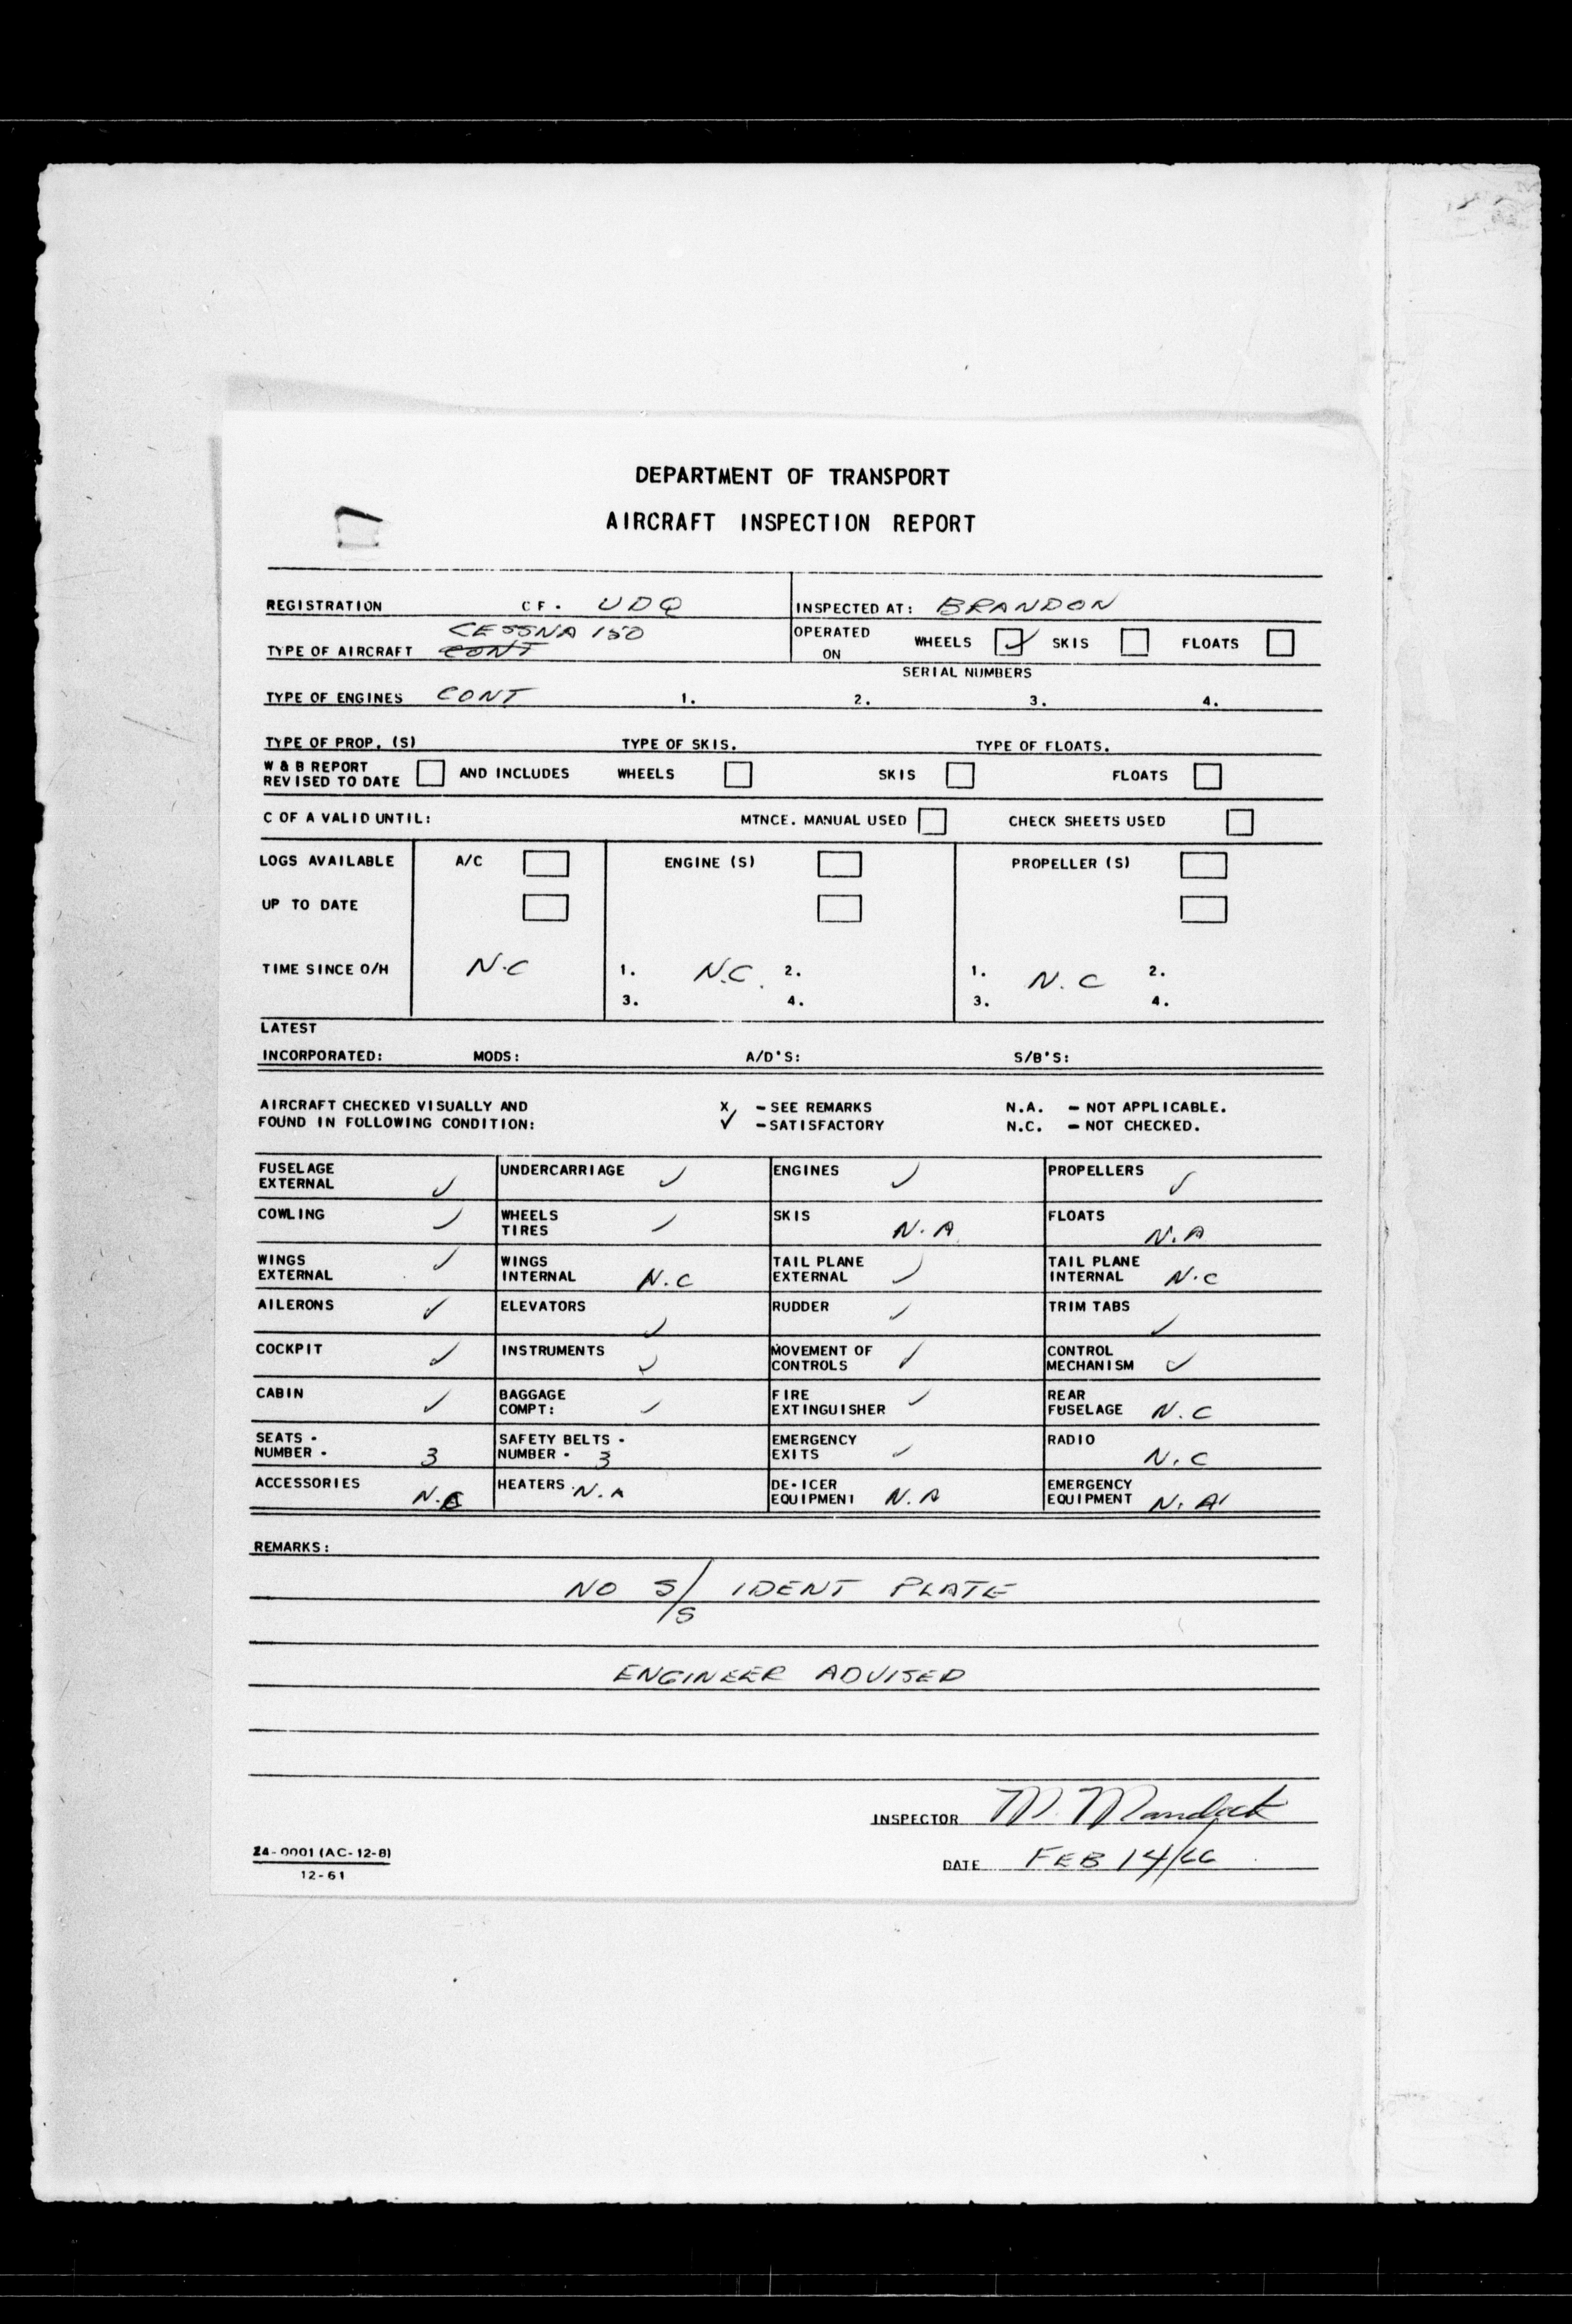 DEPARTMENT OF TRANSPORT
AIRCRAFT INSPECTION REPORT
REGISTRATION CF. UDQ INSPECTED AT: BRANDON
TYPE OF AIRCRAFT CESSNA 150 CONT OPERATED ON WHEELS ✓ SKIS FLOATS
SERIAL NUMBERS
TYPE OF ENGINES CONT 1. 2. 3. 4.
TYPE OF PROP. (S) TYPE OF SKIS. TYPE OF FLOATS.
W & B REPORT
REVISED TO DATE AND INCLUDES WHEELS SKIS FLOATS
C OF A VALID UNTIL: MTNCE. MANUAL USED CHECK SHEETS USED
LOGS AVAILABLE A/C ENGINE (S) PROPELLER (S)
UP TO DATE
TIME SINCE O/H N.C 1. N.C. 2. 1. N.C 2.
3. 4. 3. 4.
LATEST
INCORPORATED: MODS: A/D'S: S/B'S:
AIRCRAFT CHECKED VISUALLY AND X - SEE REMARKS N.A. - NOT APPLICABLE.
FOUND IN FOLLOWING CONDITION: ✓ - SATISFACTORY N.C. - NOT CHECKED.
FUSELAGE EXTERNAL ✓ UNDERCARRIAGE ✓ ENGINES ✓ PROPELLERS ✓
COWLING ✓ WHEELS TIRES ✓ SKIS N.A FLOATS N.A
WINGS EXTERNAL ✓ WINGS INTERNAL N.C TAIL PLANE EXTERNAL ✓ TAIL PLANE INTERNAL N.C
AILERONS ✓ ELEVATORS ✓ RUDDER ✓ TRIM TABS ✓
COCKPIT ✓ INSTRUMENTS ✓ MOVEMENT OF CONTROLS ✓ CONTROL MECHANISM ✓
CABIN ✓ BAGGAGE COMPT: ✓ FIRE EXTINGUISHER ✓ REAR FUSELAGE N.C
SEATS - NUMBER - 3 SAFETY BELTS - NUMBER - 3 EMERGENCY EXITS ✓ RADIO N.C
ACCESSORIES N.C HEATERS N.A DE-ICER EQUIPMENT N.A EMERGENCY EQUIPMENT N.A
REMARKS:
NO S/S IDENT PLATE
ENGINEER ADVISED
INSPECTOR M.
DATE FEB 14/66
24-0001 (AC-12-8)
12-61